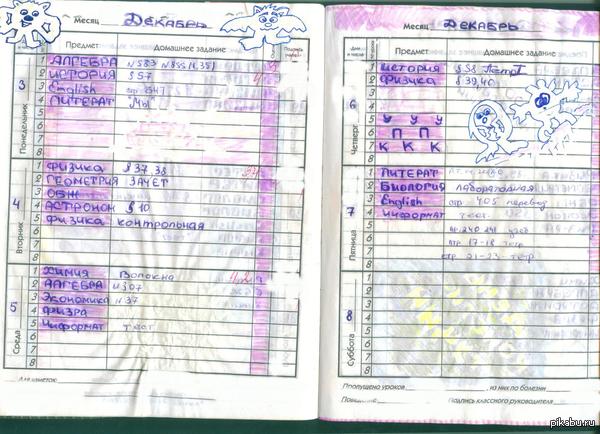 Месяц ДЕКАБРЬ
Предмет Домашнее задание
3
Понедельник
1 АЛГЕБРА
2 ИСТОРИЯ §57
3 English стр
4 ЛИТЕРАТ
5
6
7
8
4
Вторник
1 ФИЗИКА §37,38
2 ГЕОМЕТРИЯ ЗАЧЕТ
3 ОБЖ
4 АСТРОНОМ §10
5 ФИЗИКА КОНТРОЛЬНАЯ
6
7
8
5
Среда
1 ХИМИЯ Волокна
2 АЛГЕБРА №307
3 Экономика №37
4 ФИЗРА
5 Информат тест
6
7
8
Для заметок
Месяц ДЕКАБРЬ
Предмет Домашнее задание
6
Четверг
1 ИСТОРИЯ §58
2 ФИЗИКА §39,40
3
4
5 У У У
6 П П
7 К К К
8
7
Пятница
1 ЛИТЕРАТ
2 БИОЛОГИЯ лабораторная
3 English стр 405 перевод
4 Информат тест
5 стр 240 241
6 стр 17-18 тетр
7 стр 21-23 тетр
8
8
Суббота
1
2
3
4
5
6
7
8
Пропущено уроков , из них по болезни
Поведение Подпись классного руководителя
pikabu.ru